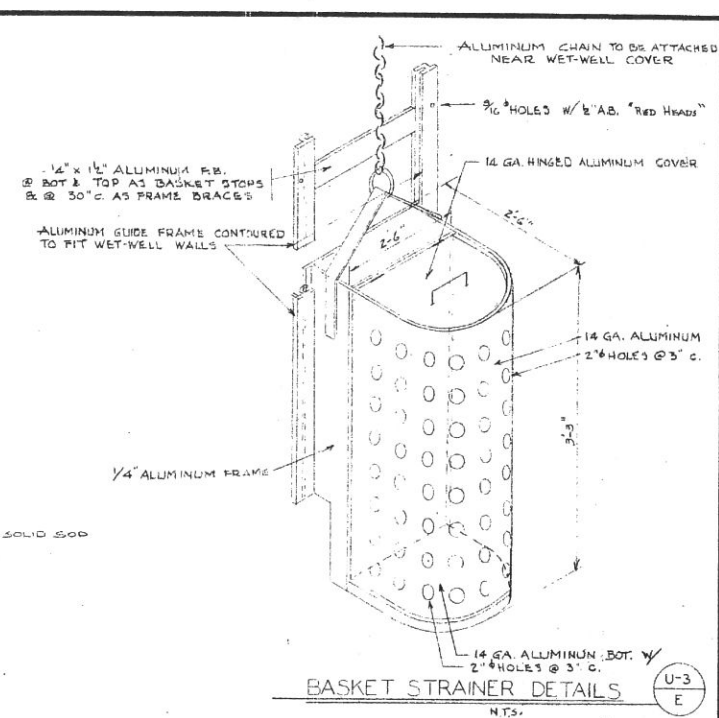 ALUMINUM CHAIN TO BE ATTACHED
NEAR WET-WELL COVER
9/16"ø HOLES W/ ½" A.B. "RED HEADS"
¼" x 1½" ALUMINUM F.B.
@ BOT & TOP AS BASKET STOPS
& @ 30" C. AS FRAME BRACES
14 GA. HINGED ALUMINUM COVER
ALUMINUM GUIDE FRAME CONTOURED
TO FIT WET-WELL WALLS
2'-6"
2'-6"
14 GA. ALUMINUM
2"ø HOLES @ 3" C.
3'-3"
1/4" ALUMINUM FRAME
SOLID SOD
14 GA. ALUMINUN BOT. W/
2"ø HOLES @ 3" C.
BASKET STRAINER DETAILS
N.T.S.
U-3
E